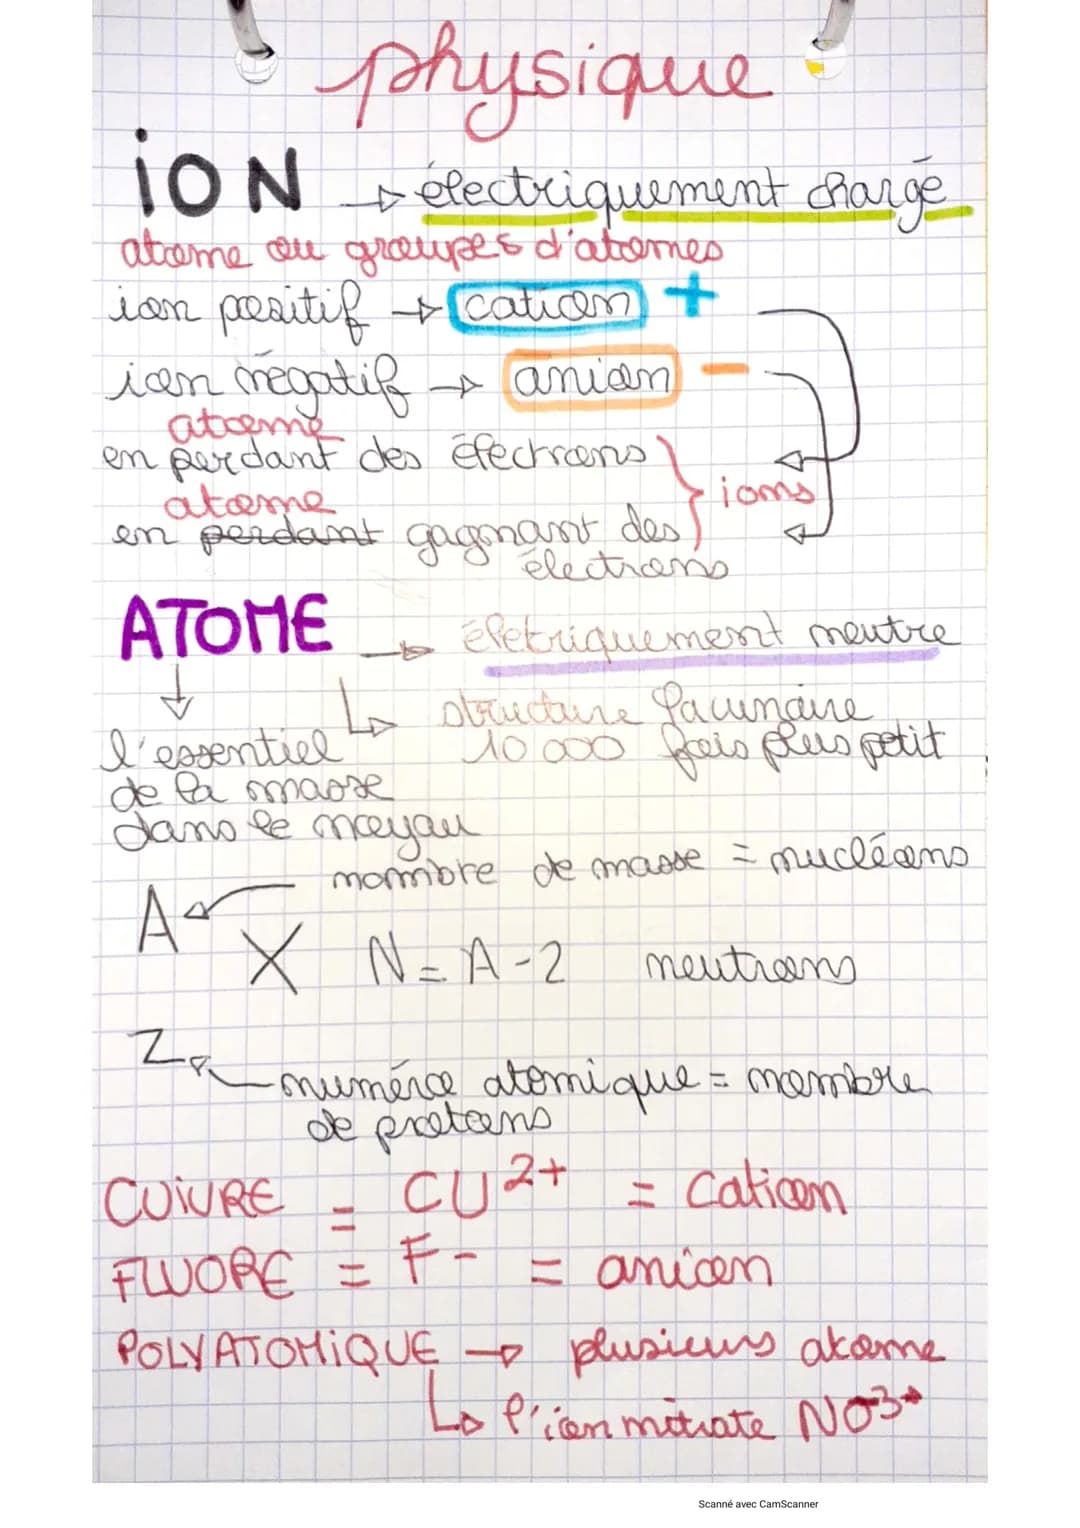 physique
ION → électriquement chargé
atome ou groupes d'atomes
ion positif → cation +
ion négatif → anion -
atome
en perdant des électrons
atome
ions
en perdant gagnant des
électrons
ATOME → életriquement neutre
↳ structure lacunaire
10 000 fois plus petit
l'essentiel
de la masse
dans le noyau
nombre de masse = nucléons
A
X N = A - 2 neutrons
Z
numéro atomique = nombre
de protons
CUIVRE = CU²⁺ = Cation
FLUORE = F⁻ = anion
POLYATOMIQUE → plusieurs atome
↳ l'ion nitrate NO3
Scanné avec CamScanner